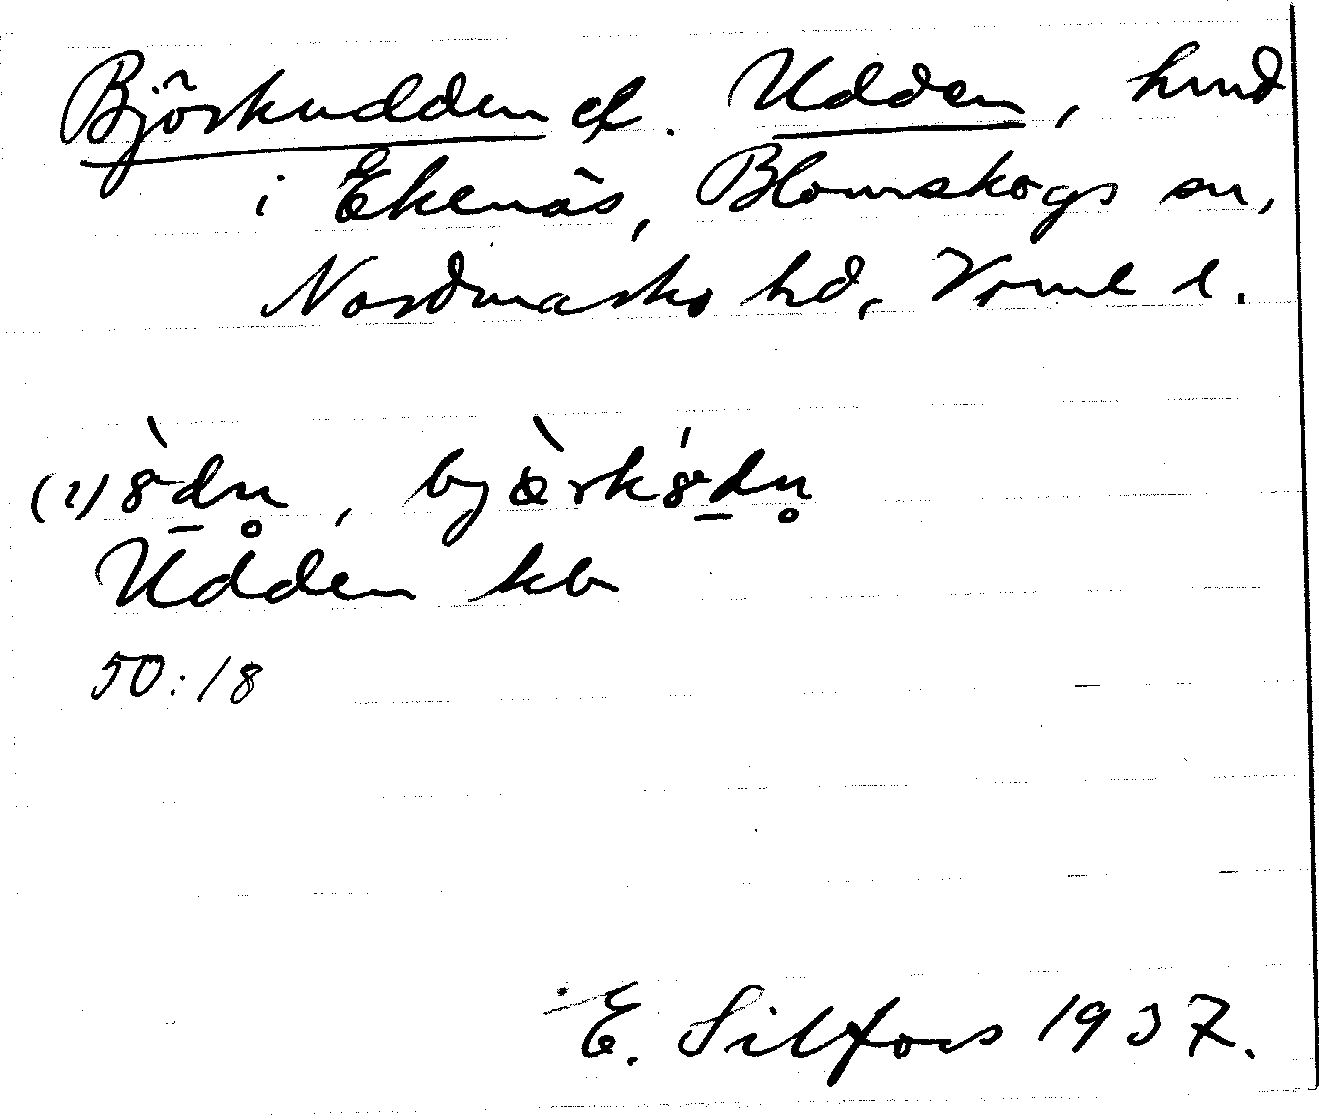 Björkudden el. Udden, hmd
i Ekenäs, Blomskogs sn,
Nordmarks hd, Verml l.
(i) 8̀dn̥, bjæ̀rk8́dn̥
Udden kb
50:18
E. Silfors 1937.